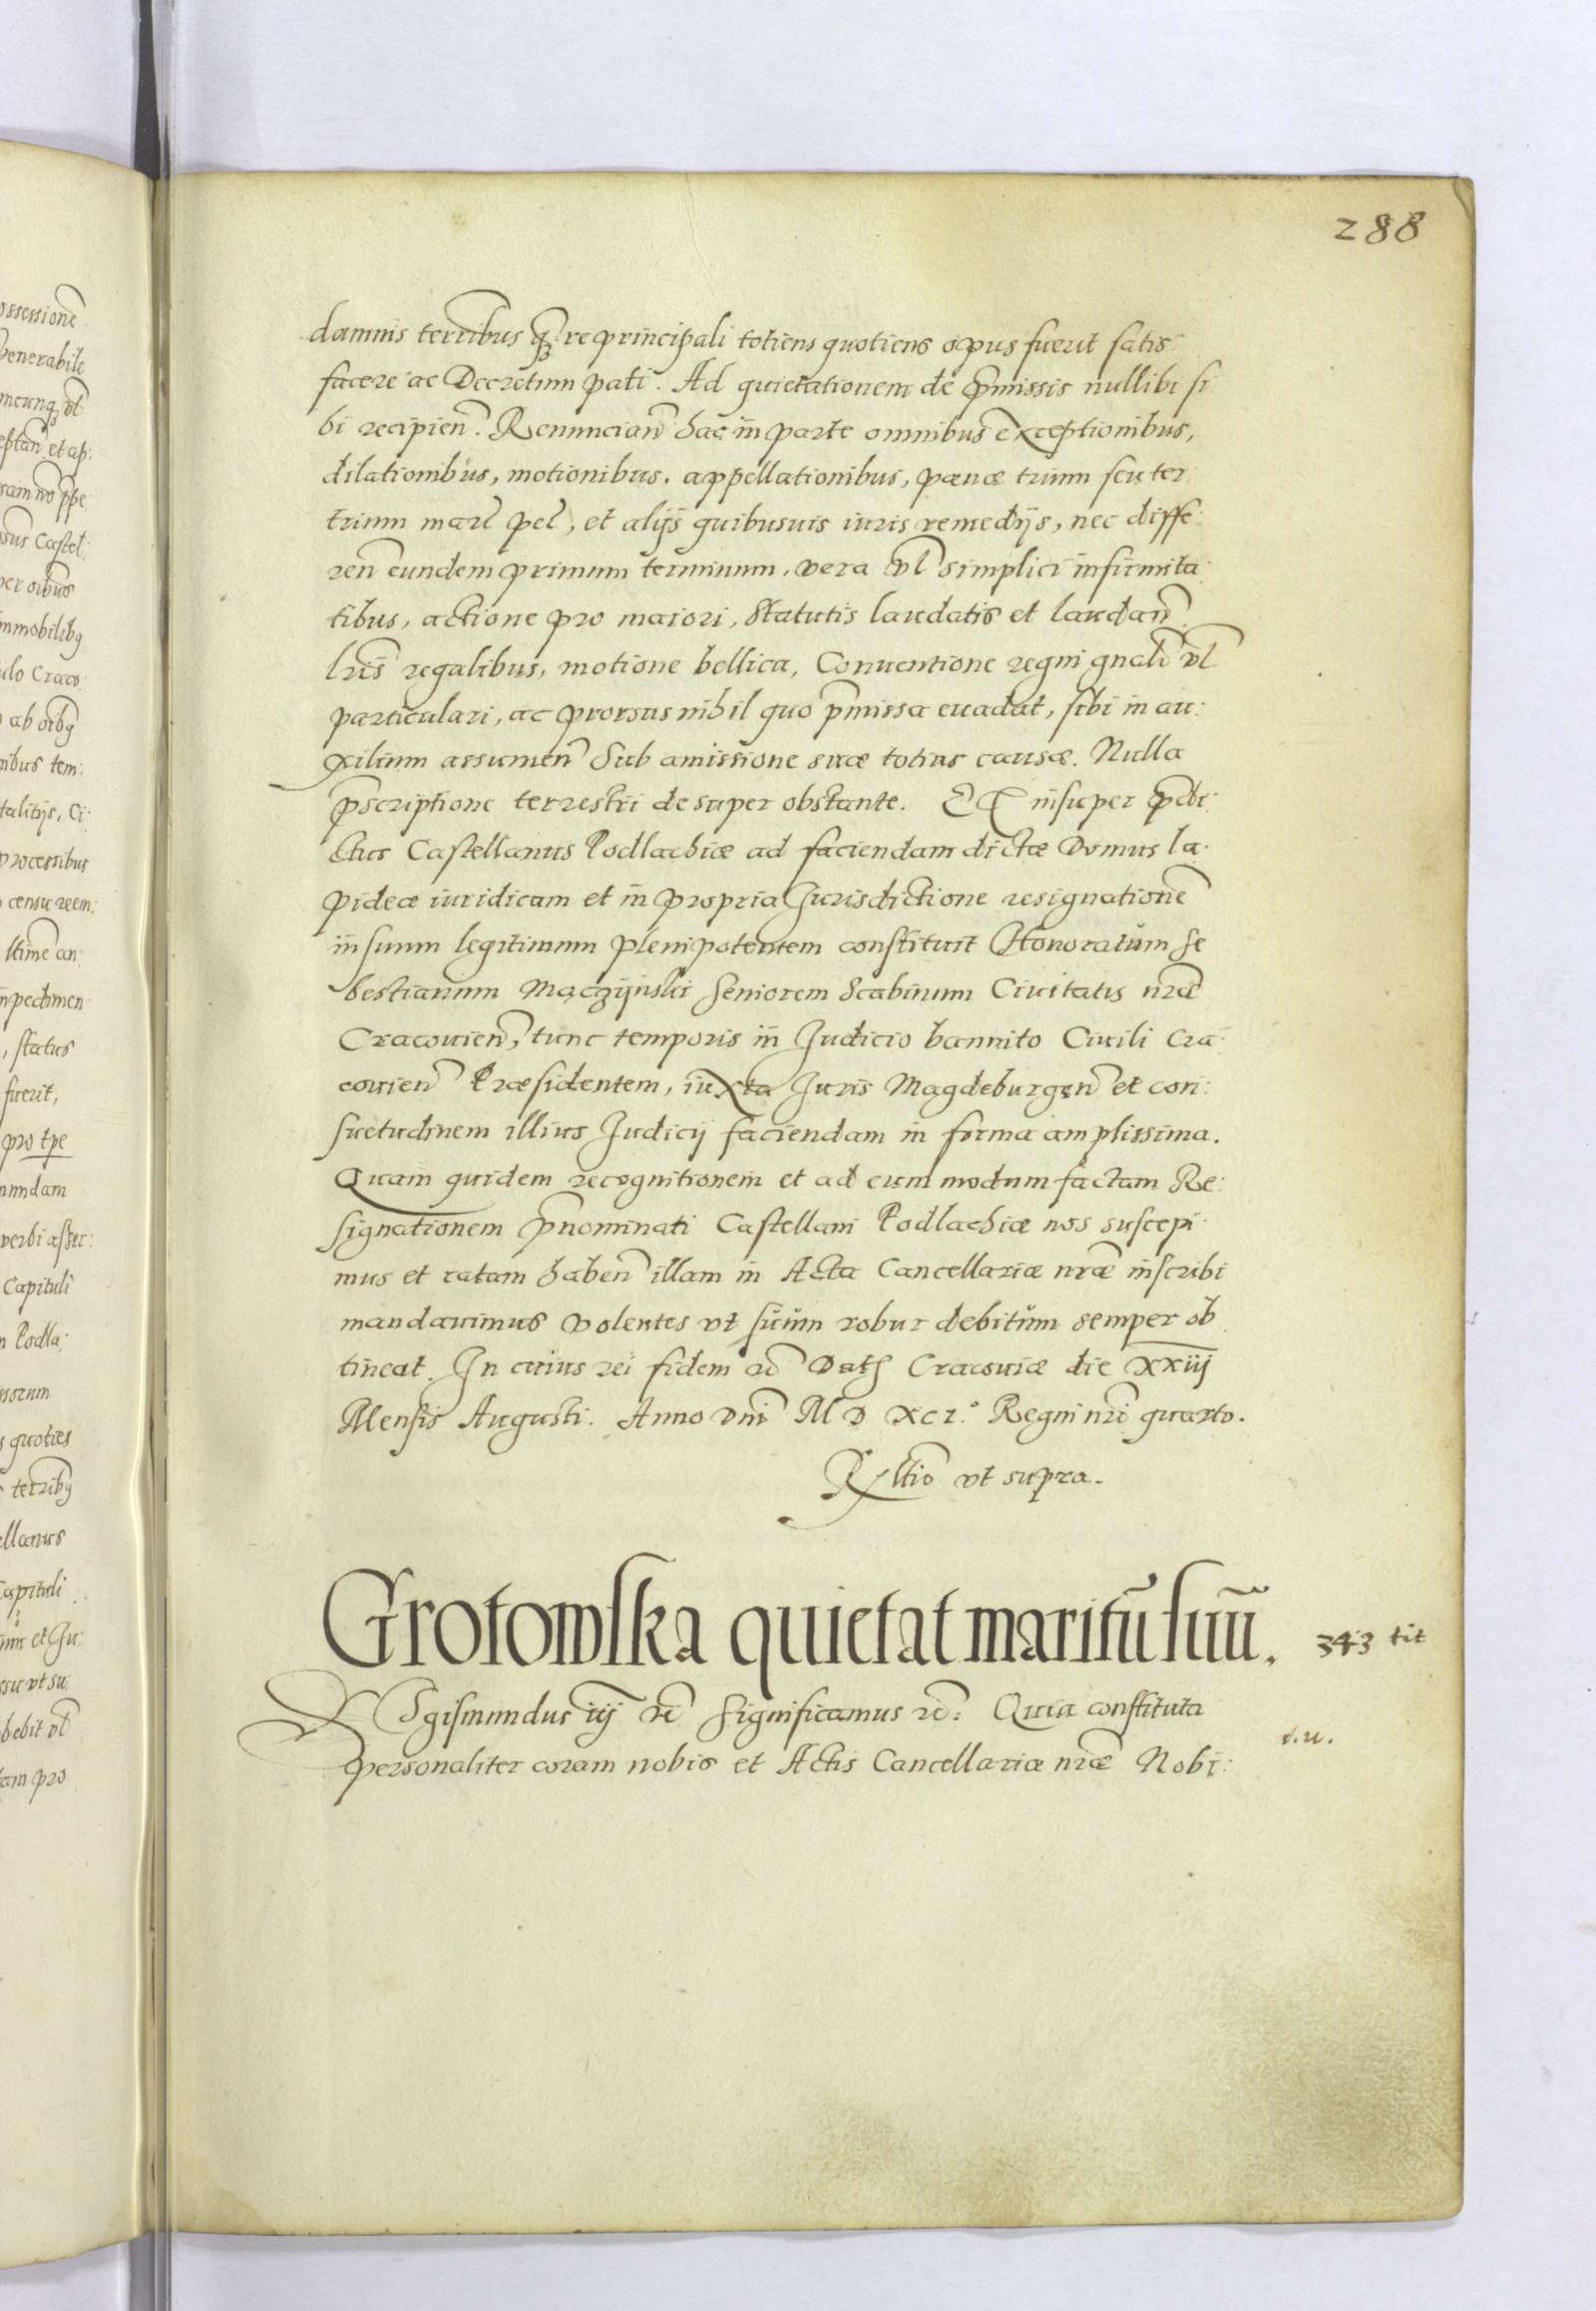 288
damnis terribus re principali totiens quotiens opus fuerit satis
facere ac Decretum pati. Ad quietationem de pmissis nullibi si
bi recipień. Renuncian hac in parte omnibus exceptionibus,
dilationibus, motionibus, appellationibus, pænæ trium seu ter
trium marc pec, et alijs quibusuis iuris remedijs, nec diffe:
ren eundem primum terminum, vera vl simplici infirmita
tibus, actione pro maiori, Statutis laudatis et laudan
lris regalibus, motione bellica, Conuentione regni gnali vl
particulari, ac prorsus nihil quo pmissa euadat, sibi in au:
xilium assumen Sub amissione suæ totius causæ. Nulla
pscriptione terrestri desuper obstante. Et insuper pdi:
ctus Castellanus Podlachiæ ad faciendam dictæ Domus la
pideæ iuridicam et in propria Jurisdictione resignatione
in suum legitimum plenipotentem constituit Honoratum Se
bestianum Mączijński Seniorem Scabinum Ciuitatis nræ
Cracouien, tunc temporis in Judicio bannito Ciuili Cra
couien Præsidentem, iuxta Juris Magdeburgen et con:
suetudinem illius Judicij faciendam in forma amplissima.
Quam quidem recognitionem et ad eum modum factam Re:
signationem pnominati Castellani Podlachiæ nos suscepi
mus et ratam haben illam in Acta Cancellariæ nræ inscribi
mandauimus volentes vt suum robur debitum semper ob
tineat. In cuius rei fidem rc Dat Cracouiæ die xxiij
Mensis Augusti. Anno Dni M D XCI.° Regni nri quarto.
Rltio vt supra.
Grotowska quietat maritū suū.
343 tit
Sgismundus iij rc Significamus rc: Quia constituta
personaliter coram nobis et Actis Cancellariæ nræ Nobi: